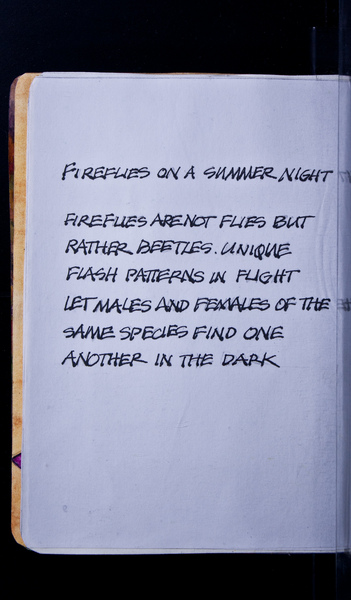 FIREFLIES ON A SUMMER NIGHT
FIREFLIES ARE NOT FLIES BUT
RATHER BEETLES. UNIQUE
FLASH PATTERNS IN FLIGHT
LET MALES AND FEMALES OF THE
SAME SPECIES FIND ONE
ANOTHER IN THE DARK